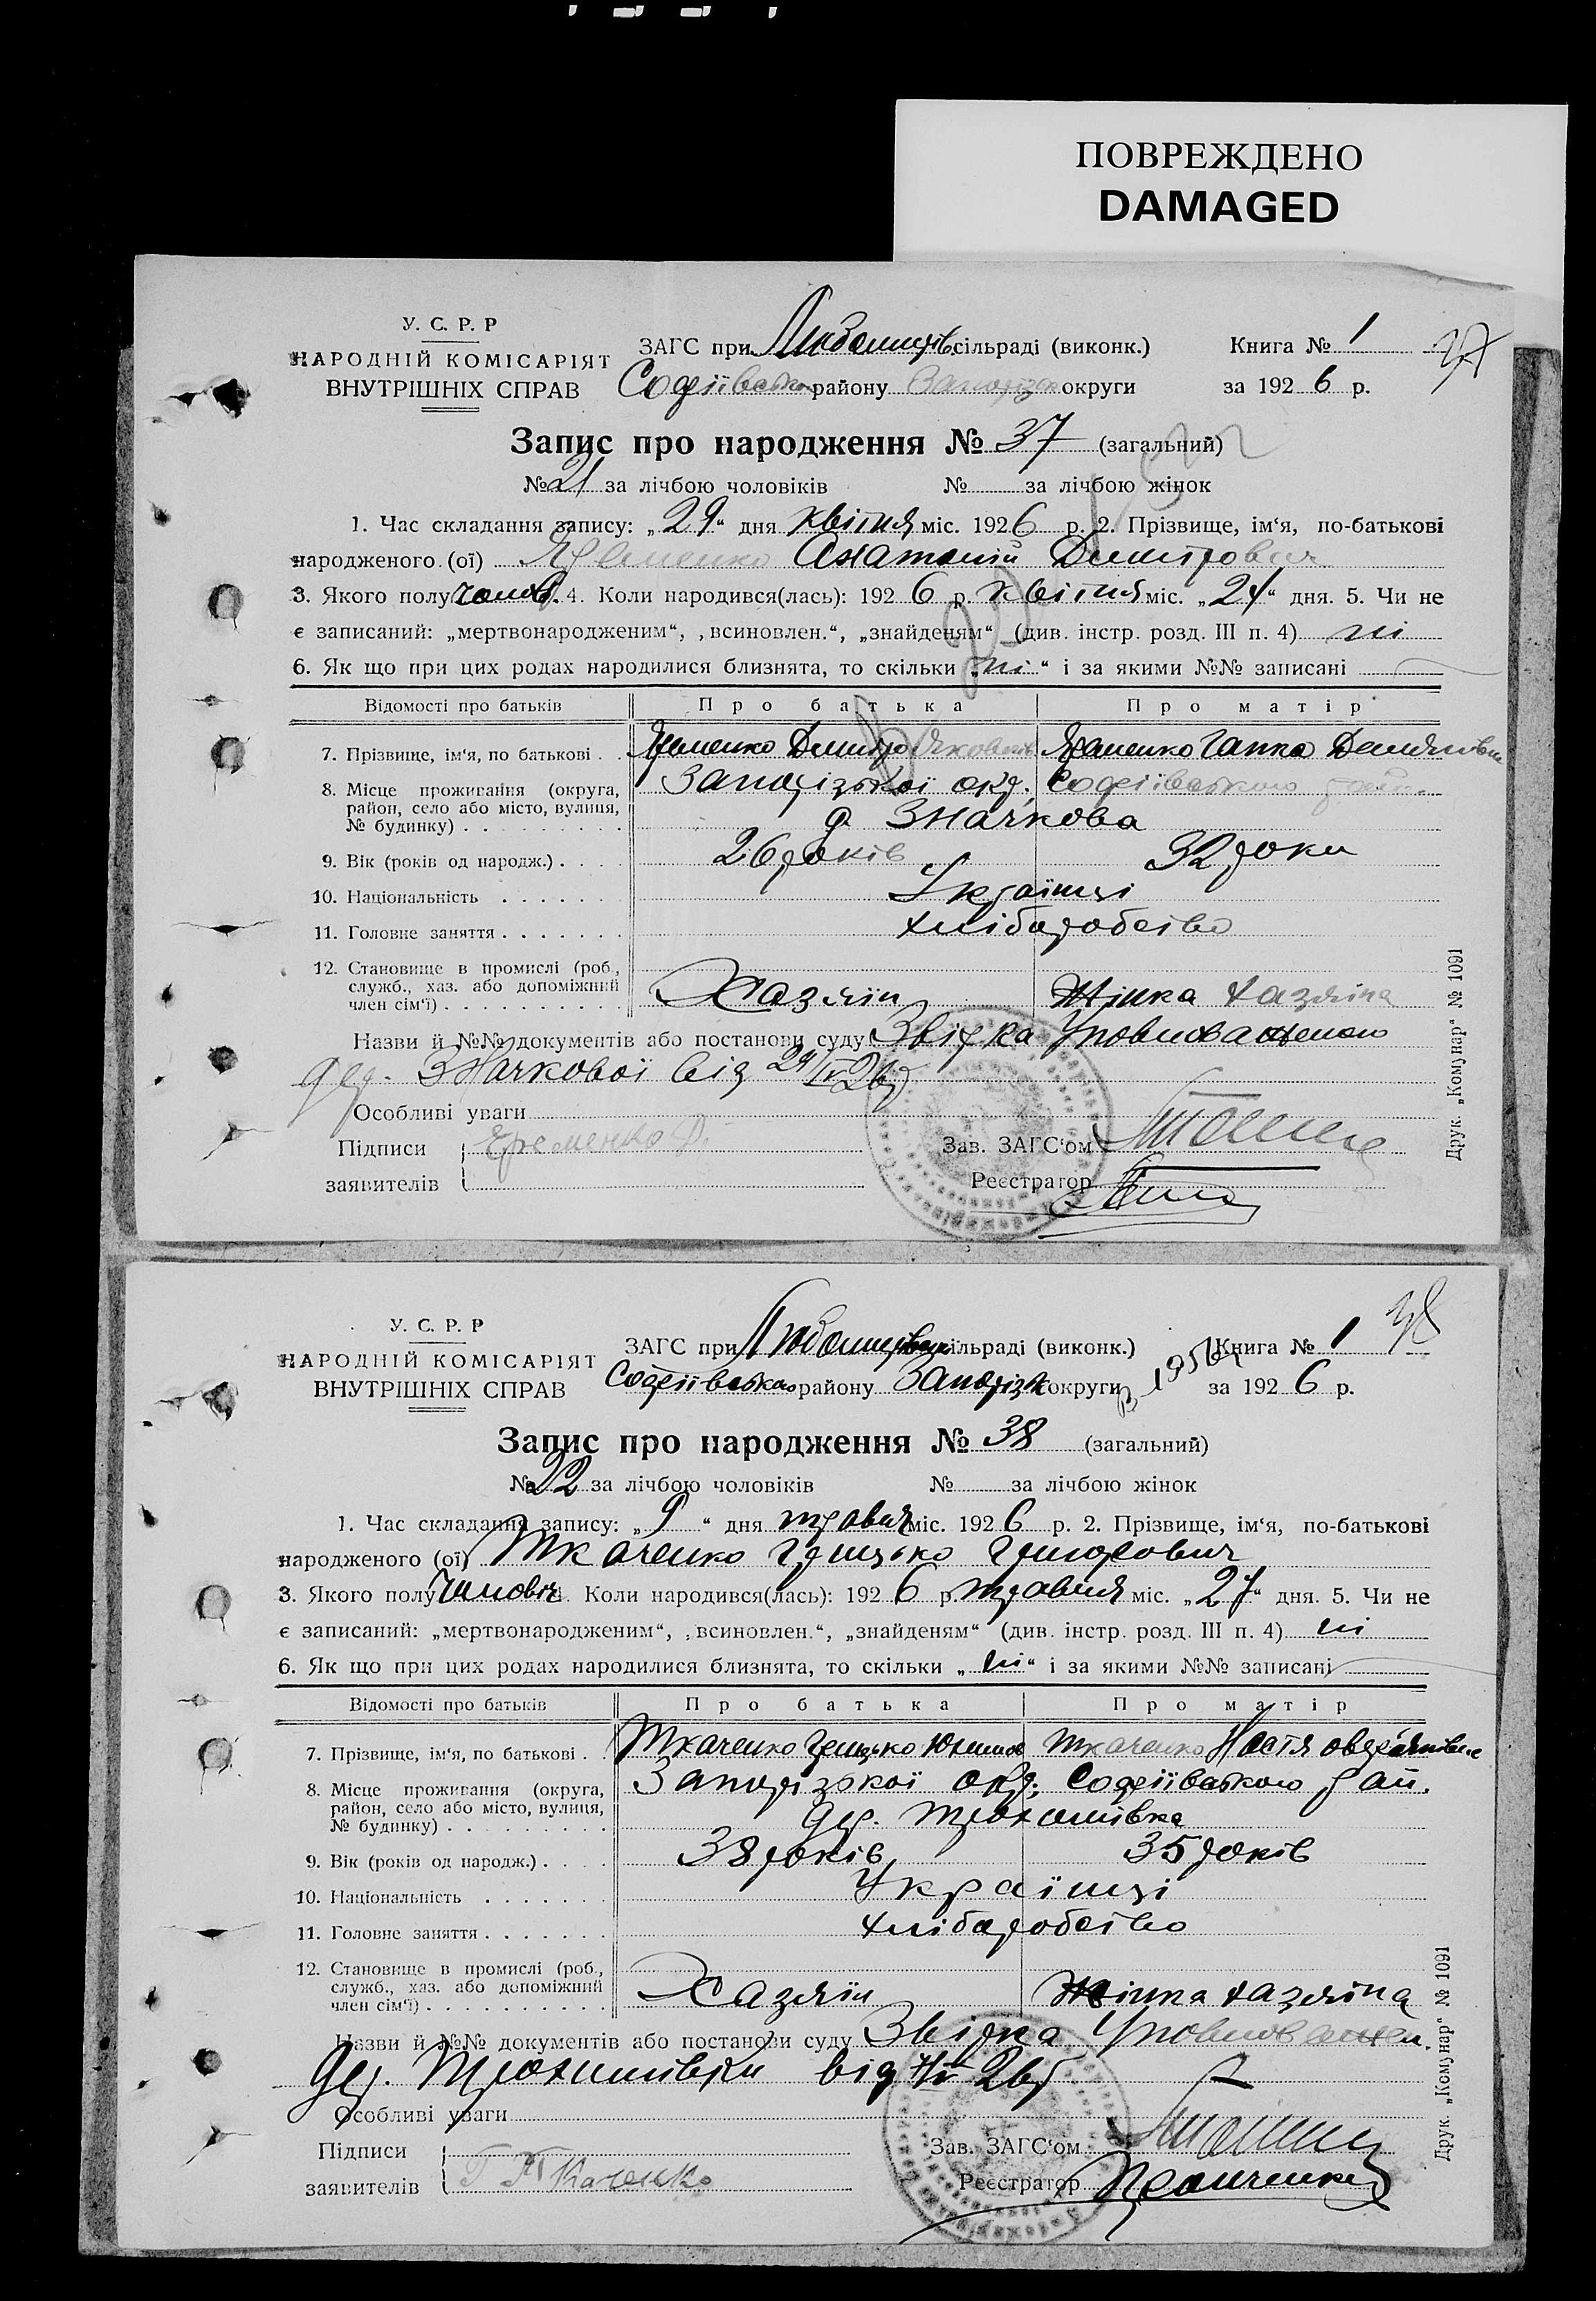 ПОВРЕЖДЕНО
DAMAGED
У. С. Р. Р
НАРОДНІЙ КОМІСАРІЯТ
ВНУТРІШНІХ СПРАВ
ЗАГС при сільраді (виконк.)
Софіївськ району Запоріз округи
Книга № 1
за 1926 р.
37
Запис про народження № 37 (загальний)
№ 21 за лічбою чоловіків № за лічбою жінок
1. Час складання запису: „29“ дня квітня міс. 1926 р. 2. Прізвище, ім‘я, по-батькові
народженого (ої) Анатолій Дмитрович
3. Якого полу чолов. 4. Коли народився(лась): 1926 р. квітня міс. „24“ дня. 5. Чи не
є записаний: „мертвонародженим“, „всиновлен.“, „знайденям“ (див. інстр. розд. III п. 4) ні
6. Як що при цих родах народилися близнята, то скільки „ні“ і за якими №№ записані
Відомості про батьків Про батька Про матір
7. Прізвище, ім‘я, по батькові . . Дмитро Якович Ганна
8. Місце прожигання (округа, район, село або місто, вулиця, № будинку) . . . . . . . . . Запорізької окр. Софіївського рай.
д Значкова
9. Вік (років од народж.) . . . . 26 років 32 роки
10. Національність . . . . . . Українці
11. Головне заняття . . . . . . . хліборобство
12. Становище в промислі (роб., служб., хаз. або допоміжний член сім‘ї) . . . . . . . . . . Хазяїн Жінка хазяїна
Назви й №№ документів або постанови суду Звірка Уповноваженого
дер. Значкової від 29/IV 26р
Особливі уваги
Підписи Еременко Д.
заявителів
Зав. ЗАГС‘ом
Реєстратор
Друк. „Комунар“ № 1091
У. С. Р. Р
НАРОДНІЙ КОМІСАРІЯТ
ВНУТРІШНІХ СПРАВ
ЗАГС при сільраді (виконк.)
Софіївського району Запорізьк округи
Книга № 1
за 1926 р.
38
Запис про народження № 38 (загальний)
№ 22 за лічбою чоловіків № за лічбою жінок
1. Час складання запису: „9“ дня травня міс. 1926 р. 2. Прізвище, ім‘я, по-батькові
народженого (ої) Ткаченко Грицько Григорович
3. Якого полу чоловіч 4. Коли народився(лась): 1926 р. травня міс. „27“ дня. 5. Чи не
є записаний: „мертвонародженим“, „всиновлен.“, „знайденям“ (див. інстр. розд. III п. 4) ні
6. Як що при цих родах народилися близнята, то скільки „ні“ і за якими №№ записані
Відомості про батьків Про батька Про матір
7. Прізвище, ім‘я, по батькові . . Ткаченко Грицько Юхимов Ткаченко Настя
8. Місце прожигання (округа, район, село або місто, вулиця, № будинку) . . . . . . . . . Запорізької окр. Софіївського рай.
дер. Трохимівка
9. Вік (років од народж.) . . . . 38 років 35 років
10. Національність . . . . . . . Українці
11. Головне заняття . . . . . . . хліборобство
12. Становище в промислі (роб., служб., хаз. або допоміжний член сім‘ї) . . . . . . . . . . Хазяїн Жінка хазяїна
Назви й №№ документів або постанови суду Звірка Уповноважен.
дер. Трохимівки від 26р
Особливі уваги
Підписи
заявителів Г Ткаченко
Зав. ЗАГС‘ом
Реєстратор
Друк. „Комунар“ № 1091